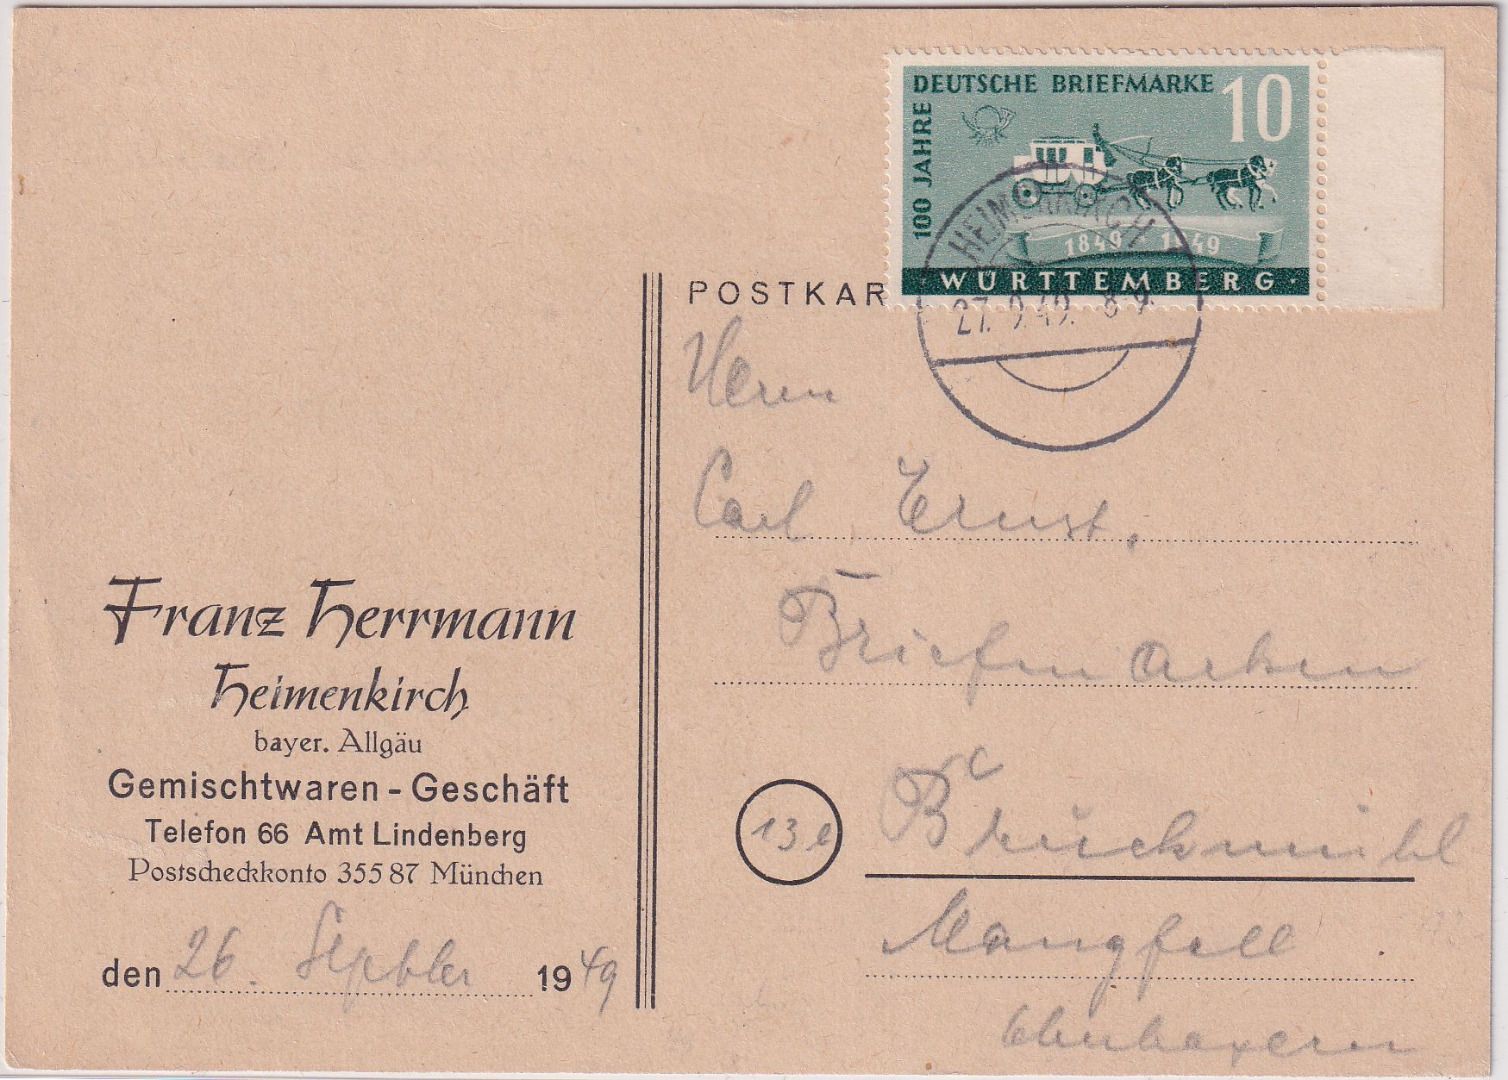 100 JAHRE
DEUTSCHE BRIEFMARKE 10
1849 1949
WÜRTTEMBERG
HEIMENKIRCH
27. 9. 49. 8-9.
POSTKAR
Herrn
Carl Ernst,
Briefmarken
Bruckmühl
Mangfall
Franz Herrmann
Heimenkirch
bayer. Allgäu
Gemischtwaren - Geschäft
Telefon 66 Amt Lindenberg
Postscheckkonto 355 87 München
den 26. Septbler 1949